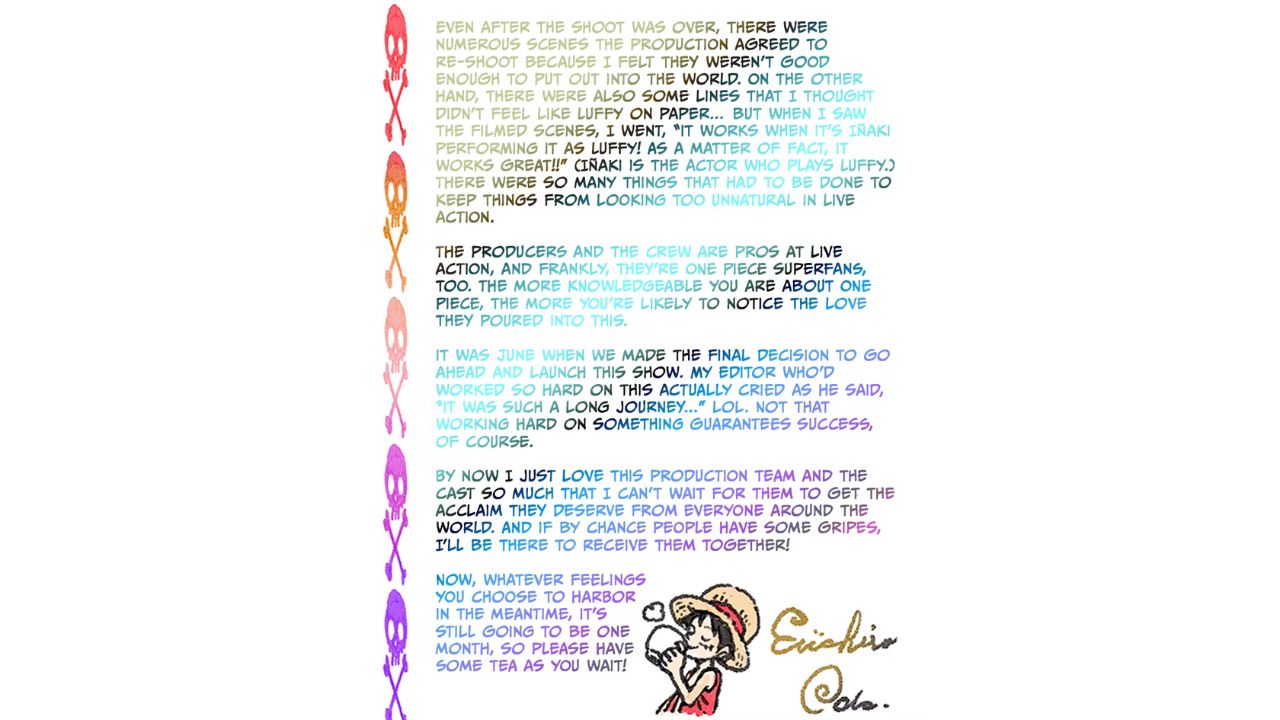 EVEN AFTER THE SHOOT WAS OVER, THERE WERE
NUMEROUS SCENES THE PRODUCTION AGREED TO
RE-SHOOT BECAUSE I FELT THEY WEREN'T GOOD
ENOUGH TO PUT OUT INTO THE WORLD. ON THE OTHER
HAND, THERE WERE ALSO SOME LINES THAT I THOUGHT
DIDN'T FEEL LIKE LUFFY ON PAPER... BUT WHEN I SAW
THE FILMED SCENES, I WENT, "IT WORKS WHEN IT'S IÑAKI
PERFORMING IT AS LUFFY! AS A MATTER OF FACT, IT
WORKS GREAT!!" (IÑAKI IS THE ACTOR WHO PLAYS LUFFY.)
THERE WERE SO MANY THINGS THAT HAD TO BE DONE TO
KEEP THINGS FROM LOOKING TOO UNNATURAL IN LIVE
ACTION.
THE PRODUCERS AND THE CREW ARE PROS AT LIVE
ACTION, AND FRANKLY, THEY'RE ONE PIECE SUPERFANS,
TOO. THE MORE KNOWLEDGEABLE YOU ARE ABOUT ONE
PIECE, THE MORE YOU'RE LIKELY TO NOTICE THE LOVE
THEY POURED INTO THIS.
IT WAS JUNE WHEN WE MADE THE FINAL DECISION TO GO
AHEAD AND LAUNCH THIS SHOW. MY EDITOR WHO'D
WORKED SO HARD ON THIS ACTUALLY CRIED AS HE SAID,
"IT WAS SUCH A LONG JOURNEY..." LOL. NOT THAT
WORKING HARD ON SOMETHING GUARANTEES SUCCESS,
OF COURSE.
BY NOW I JUST LOVE THIS PRODUCTION TEAM AND THE
CAST SO MUCH THAT I CAN'T WAIT FOR THEM TO GET THE
ACCLAIM THEY DESERVE FROM EVERYONE AROUND THE
WORLD. AND IF BY CHANCE PEOPLE HAVE SOME GRIPES,
I'LL BE THERE TO RECEIVE THEM TOGETHER!
NOW, WHATEVER FEELINGS
YOU CHOOSE TO HARBOR
IN THE MEANTIME, IT'S
STILL GOING TO BE ONE
MONTH, SO PLEASE HAVE
SOME TEA AS YOU WAIT!
Eiichiro
Oda.